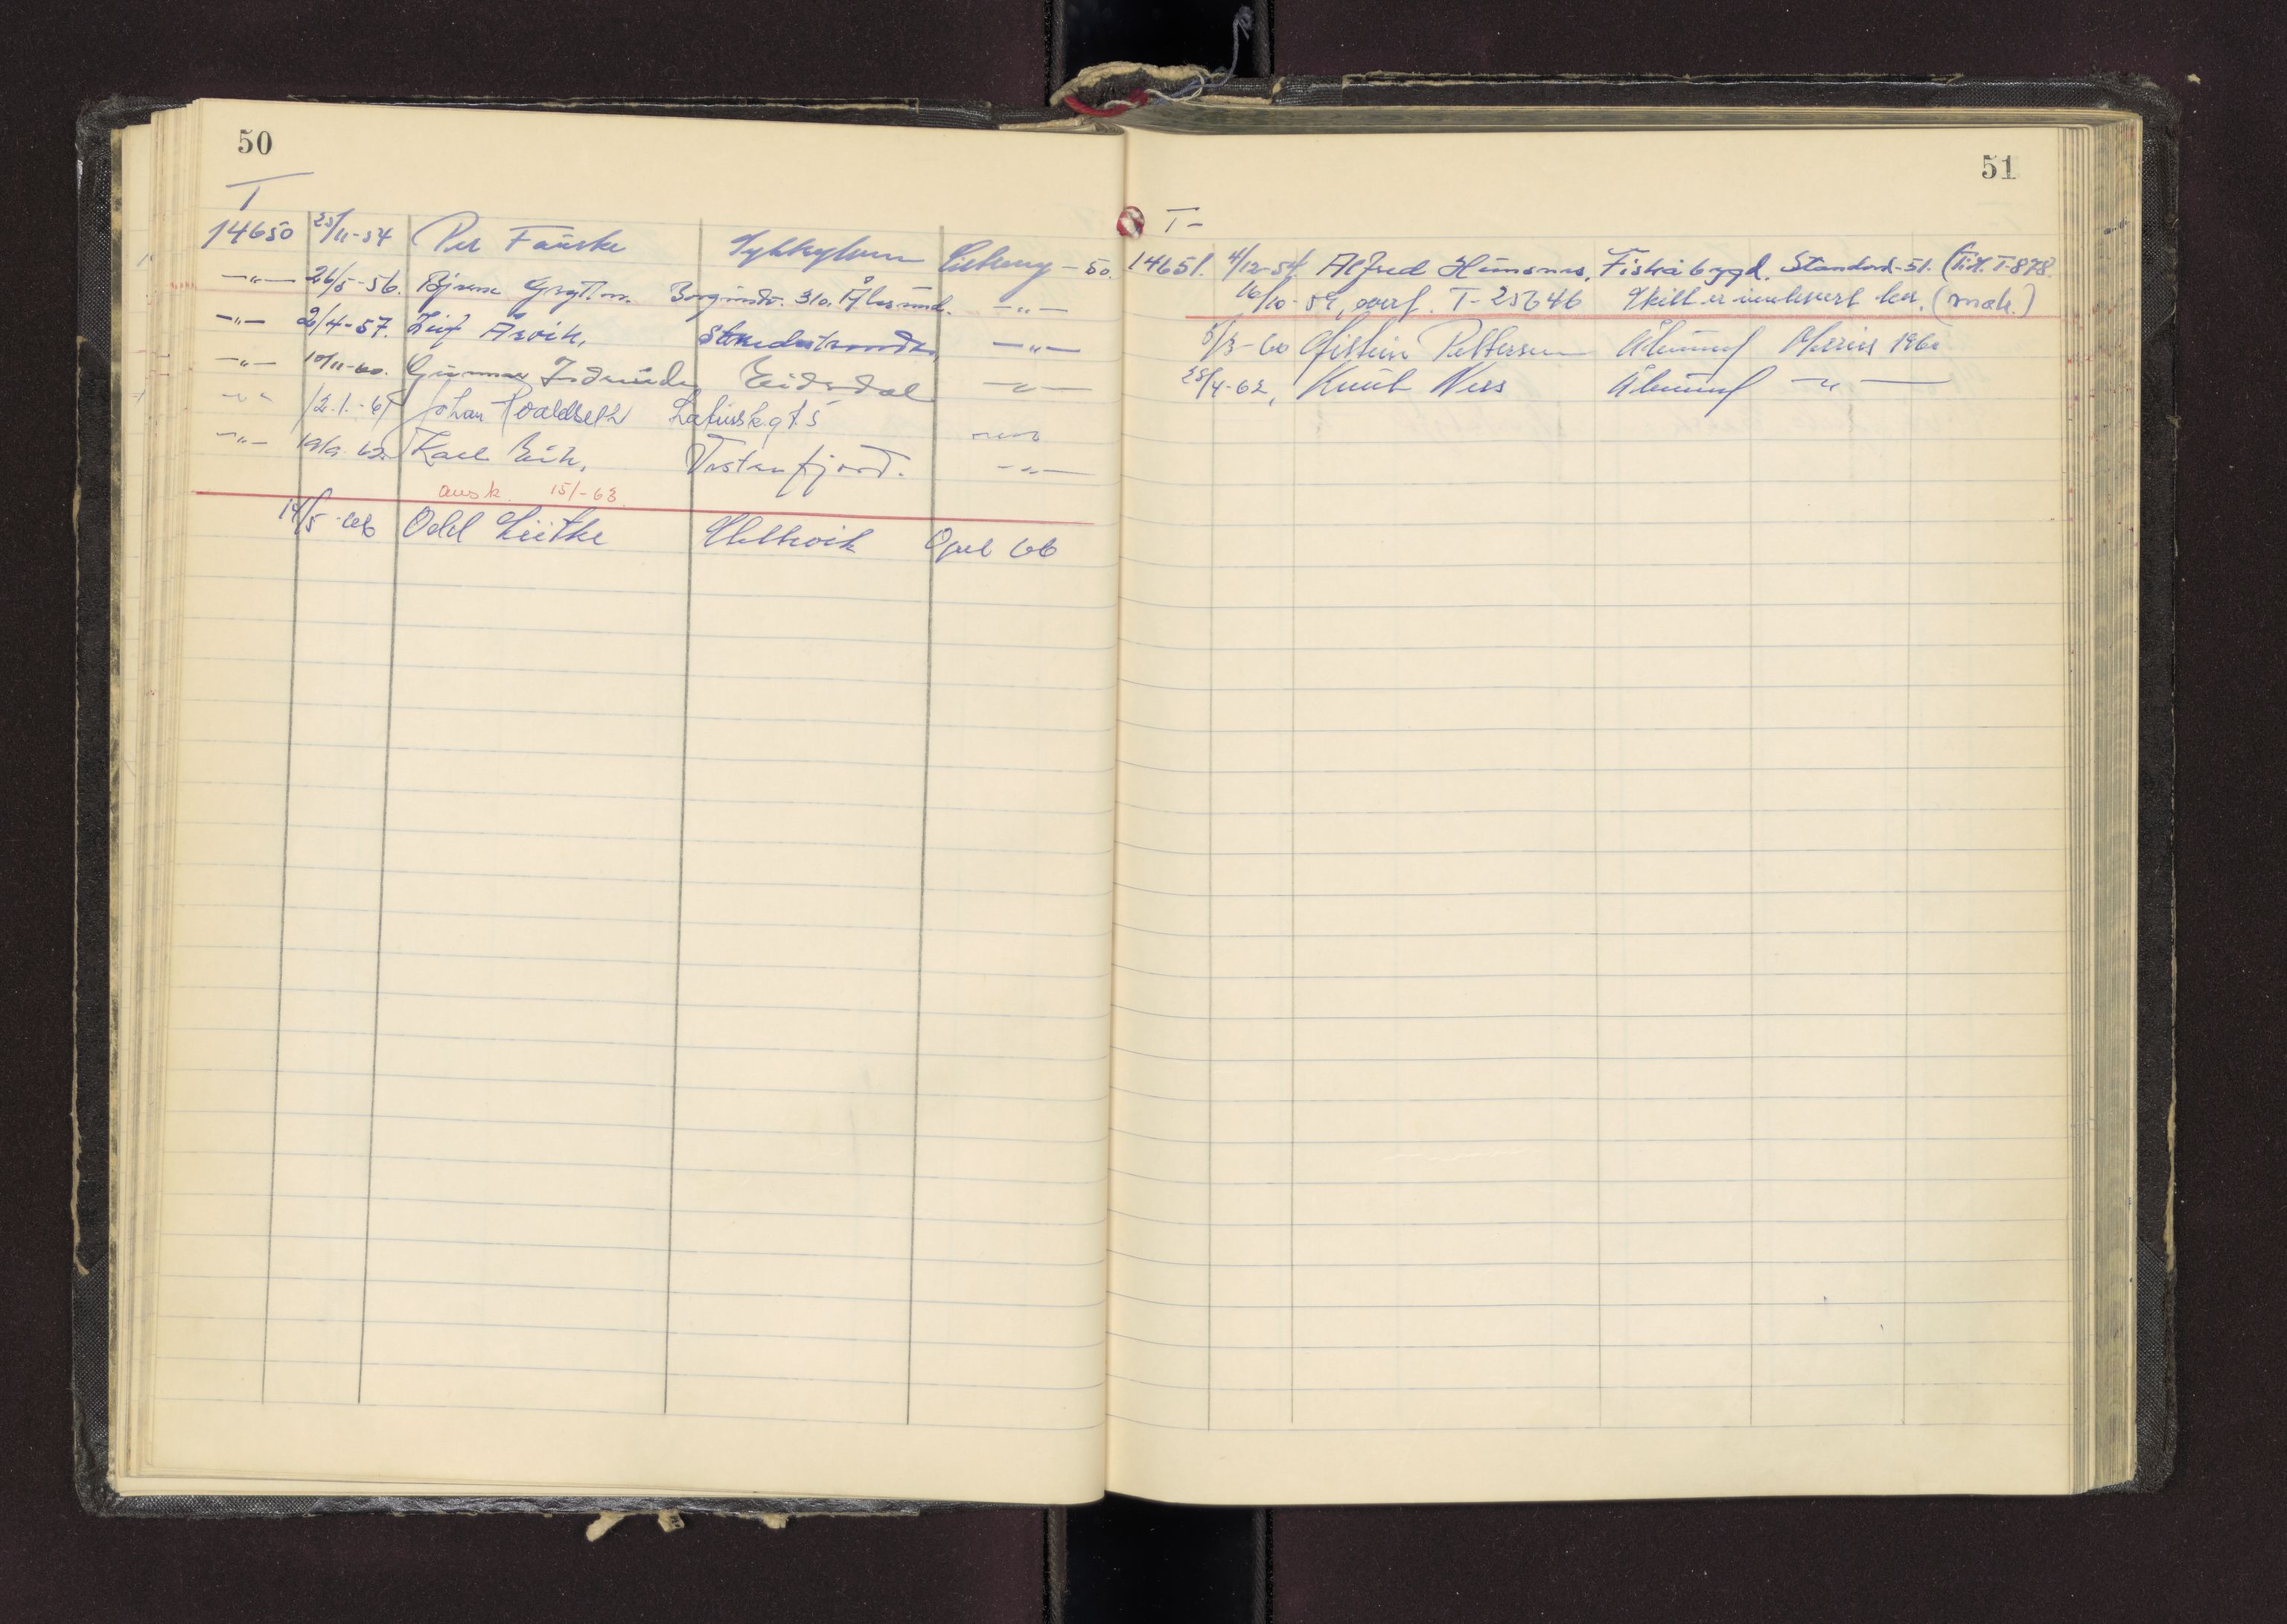 50
T
14650 25/11-54 Per Fauske Sykkylven -50.
-"- 26/5-56. Bjarne Grytten. Borgundv. 310. Ålesund. -"-
-"- 2/4-57. Leif Årvik, Stordalstranda, -"-
-"- 10/11-60. Gunnar Indreeide Eidsdal -"-
-"- 12.1.-61 Johan Roaldseth -"-
-"- 19/9. 62. Karl Eik, Vestnefjord. -"-
avsk. 15/-63
14/5-66 Odd Lütke Opel 66
51
T-
14651. 4/12-54 Alfred Humsnes, Fiskåbygd. Standard-51. (tid. T-878
16/10-59, overf. T-25646 Skilt er innlevert her. (mak.)
5/3-60 Øistein Pettersen Ålesund Morris 1960
28/4-62, Knut Ness Ålesund -"-